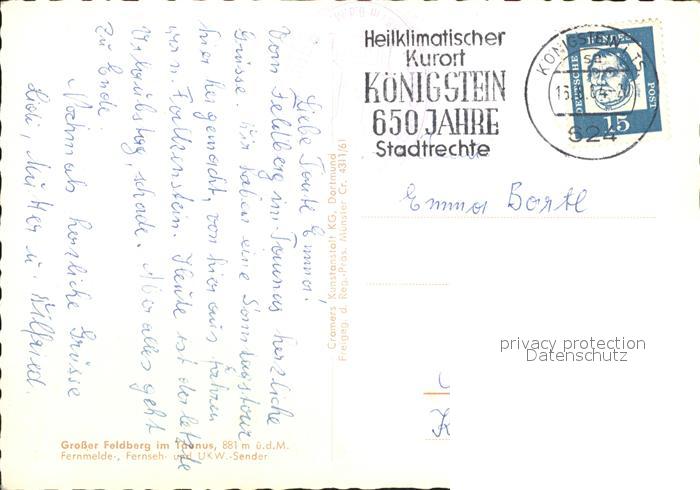 Liebe Tante Emma!
Vom Feldberg im Taunus herzliche
Grüsse. Wir haben eine Sonntagstour
hier her gemacht, von hier aus fahren
wir n. Falkenstein. Heute ist der letzte
Urlaubstag, schade. Aber alles geht
zu Ende.
Nochmals herzliche Grüsse
Mutter u. Wilfried.
Großer Feldberg im Taunus, 881 m ü.d.M.
Fernmelde-, Fernseh- und UKW.-Sender
Cramers Kunstanstalt KG, Dortmund
Freigeg. d. Reg.-Präs. Münster Cr. 4311/61
Heilklimatischer
Kurort
KÖNIGSTEIN
650 JAHRE
Stadtrechte
KÖNIGSTEIN
624
DEUTSCHE BUNDESPOST
15
Emma
privacy protection
Datenschutz
K